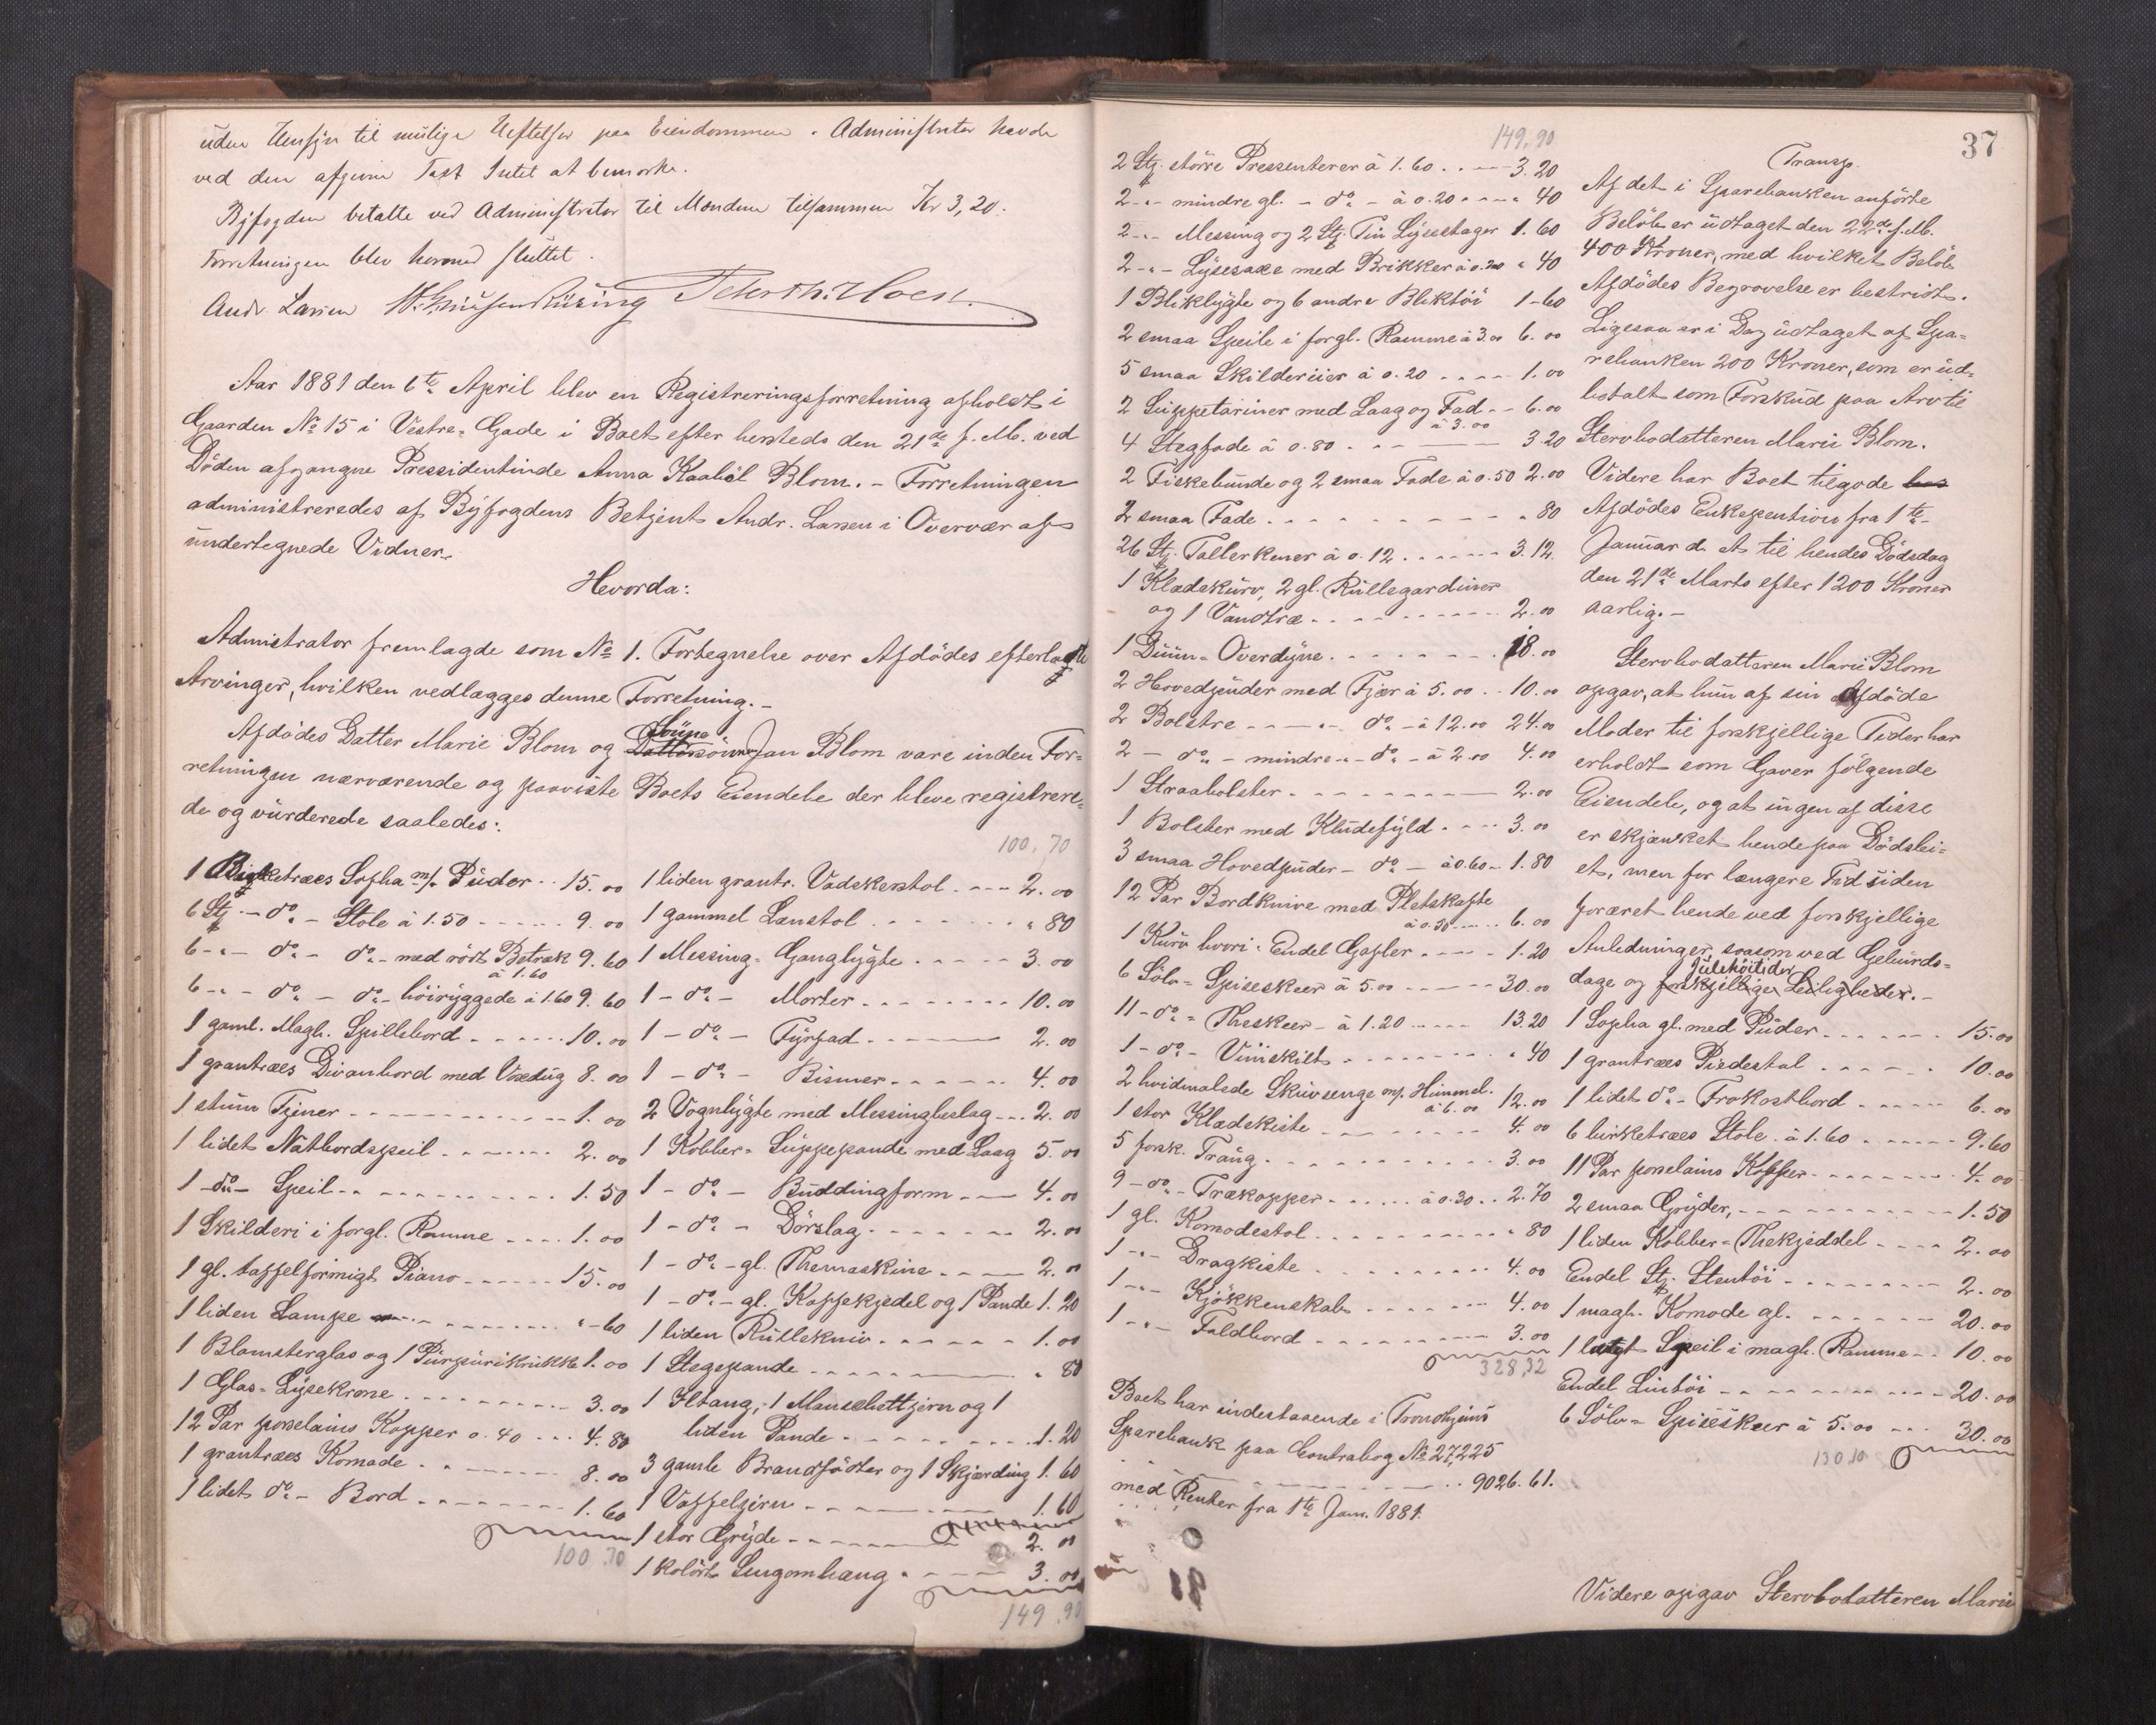 uden Hensyn til mulige Heftelser paa Eiendommen. Administrator havde
ved den afgivne Taxt Intet at bemærke.
Byfogden betalte ved Administrator til Mændene tilsammen Kr 3,20.
Forretningen blev hermed sluttet.
Andr. Larsen
Aar 1881 den 6te April blev en Registreringsforretning afholdt i
Gaarden No 15 i Vestre-Gade i Boet efter hersteds den 21de f. M. ved
Døden afgangne Pressidentinde Anna Kaabøl Blom. - Forretningen
administreredes af Byfogdens Betjent Andr. Larsen i Overvær af
undertegnede Vidner.
Hvorda:
Admistrator fremlagde som No 1. Fortegnelse over Afdødes efterlagte
Arvinger, hvilken vedlægges denne Forretning. -
Sønne
Afdødes Datter Marie Blom og Dattersønner Jan Blom vare inden For-
retningen nærværende og paaviste Boets Eiendele der bleve registrere-
de og vurderede saaledes:
1 Birketræes Sopha m/ Puder .. 15.00
6 Stk. - do. - Stole à 1.50 9.00
6 -"- do. - do. - med rødt Betræk 9.60
à 1.60
6 -"- do. - do. - høiryggede à 1.60 9.60
1 gaml. Magh. Spillebord 10.00
1 grantræes Divanbord med Voxdug 8.00
1 stum Tjener 1.00
1 lidet Natbordspeil 2.00
1 -do- Speil 1.50
1 Skilderi i forgl. Ramme 1.00
1 gl. taffelformigt Piano 15.00
1 liden Lampe "-60
1 Blomsterglas og 1 Purpurikrukke 1.00
1 Glas-Lysekrone 3.00
12 Par porselains Kopper 0.40 4.80
1 grantræes Komode 8.00
1 lidet do. - Bord 1.60
100.70
100,70
1 liden grantr. Vadskerstol 2.00
1 gammel Lænstol " 80
1 Messing-Ganglygte 3.00
1 - do. - Morter 10.00
1 - do. - Fyrfad 2.00
1 - do. - Bismer 4.00
2 Vognlygte med Messingbeslag 2.00
1 Kobber-Suppepande med Laag 5.00
1 - do. - Buddingform 4.00
1 - do. - Dørslag 2.00
1 - do. - gl. Themaskine 2.00
1 - do. - gl. Kaffekjedel og 1 Pande 1.20
1 liden Rullekniv 1.00
1 Stegepande " 80
1 Ildtang, 1 Manschettjern og 1
liden Pande 1.20
3 gamle Brandfødter og 1 Skjærding 1.60
1 Vaffeljern 1.60
1 stor Gryde 2.00
1 kolørt Sengomhæng 3.00
149.90
37
149,90
2 Stk. større Pressenterer à 1.60 3.20
2 -"- mindre gl. - do. - à 0.20 " 40
2 -"- Messing og 2 Stk. Tin Lysestager 1.60
2 -"- Lysesaxe med Brikker à 0.20 " 40
1 Bliklygte og 6 andre Bliktøi 1-60
2 smaa Speile i forgl. Ramme à 3.00 6.00
5 smaa Skilderiier à 0.20 1.00
2 Suppetariner med Laag og Fad 6.00
à 3.00
4 Stegfade à 0.80 3.20
2 Fiskebunde og 2 smaa Fade à 0.50 2.00
2 smaa Fade " 80
26 Stk. Tallerkener à 0.12 3.12
1 Klædekurv, 2 gl. Rullegardiner
og 1 Vandtræ 2.00
1 Duun-Overdyne 18.00
2 Hovedpuder med Fjær à 5.00 10.00
2 Bolstre -"- do. - à 12.00 24.00
2 - do. - mindre -"- do. - à 2.00 4.00
1 Straabolster 2.00
1 Bolster med Kludefyld 3.00
3 smaa Hovedpuder - do. - à 0.60 - 1.80
12 Par Bordknive med Pletskafte
à 0.50 6.00
1 Kurv hvori Endel Gafler 1.20
6 Sølv-Spiseskeer à 5.00 30.00
11 - do. - Theskeer - à 1.20 13.20
1 - do. - Viinskilt " 40
2 hvidmalede Skuvsenge m/. Himmel.
à 6.00 12.00
1 stor Klædekiste 4.00
5 forsk. Traug 3.00
9 - do. - Trækopper à 0.30 2.70
1 gl. Komodestol " 80
1 -"- Dragkiste 4.00
1 -"- Kjøkkenskab 4.00
1 -"- Foldbord 3.00
328,32
Boet har indestaaende i Trondhjems
Sparebank paa Contrabog No 27,225
9026.61.
med Renter fra 1te Jan. 1881.
18
Transp.
Af det i Sparebanken anførte
Beløb er udtaget den 22de f. M.
400 Kroner, med hvilket Beløb
Afdødes Begravelse er bestridt.
Ligesaa er i Dag udtaget af Spa-
rebanken 200 Kroner, som er ud-
betalt som Forskud paa Arv til
Stervbodatteren Marie Blom.
Videre har Boet tilgode hos
Afdødes Enkepention fra 1te
Januar d. A. til hendes Dødsdag
den 21de Marts efter 1200 Kroner
aarlig. -
Stervbodatteren Marie Blom
opgav, at hun af sin Afdøde
Moder til forskjellige Tider har
erholdt som Gaver følgende
Eiendele, og at ingen af disse
er skjænket hende paa Dødslei-
et, men for længere Tid siden
foræret hende ved forskjellige
Anledninger, saasom ved Geburds-
Julehøitider
dage og forskjellige Leiligheder. -
1 Sopha gl. med Puder 15.00
1 grantræes Piedestal 10.00
1 lidet do. - Frokostbord 6.00
6 birketræes Stole à 1.60 9.60
11 Par porselains Kopper 4.00
2 smaa Gryder, 1.50
1 liden Kobber-Thekjeddel 2.00
Endel Stk. Stentøi 2.00
1 magh. Komode gl. 20.00
1 Speil i magh. Ramme 10.00
Endel Lintøi 20.00
6 Sølv-Spiseskeer à 5.00 30.00
130 10
Videre opgav Stervbodatteren Marie